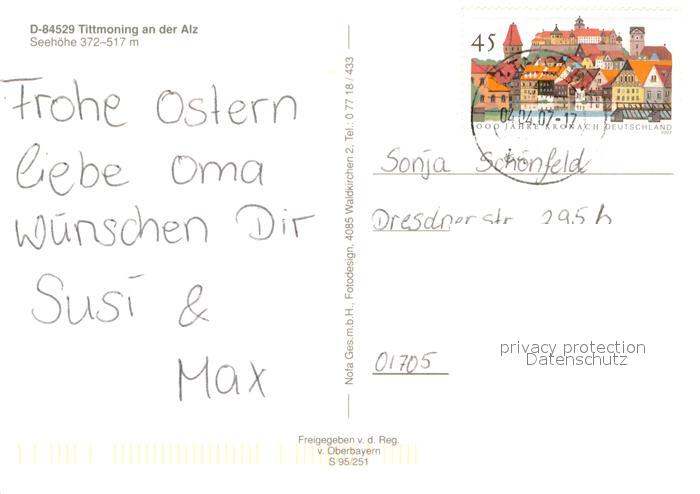 D-84529 Tittmoning an der Alz
Seehöhe 372–517 m
Frohe Ostern
liebe Oma
wünschen Dir
Susi &
Max
Nota Ges.m.b.H., Fotodesign, 4085 Waldkirchen 2, Tel.: 0 77 18 / 433
45
04.04.07-17
1000 JAHRE KRONACH DEUTSCHLAND
Sonja Schönfeld
Dresdner str
01705
privacy protection
Datenschutz
Freigegeben v. d. Reg.
v. Oberbayern
S 95/251